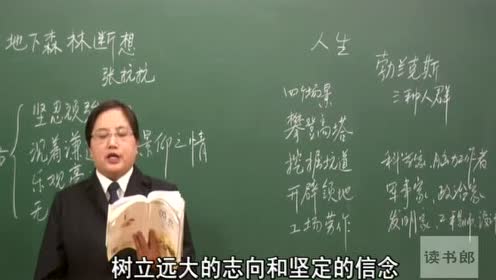 地下森林断想
张抗抗
坚忍顽强
沉着谦 景仰之情
乐观
无
人生
勃兰克斯
四个场景
三种人群
攀登高塔
挖掘坑道
科学家
开辟领地
军事家、政治家
工场劳作
发明家
树立远大的志向和坚定的信念
读书郎